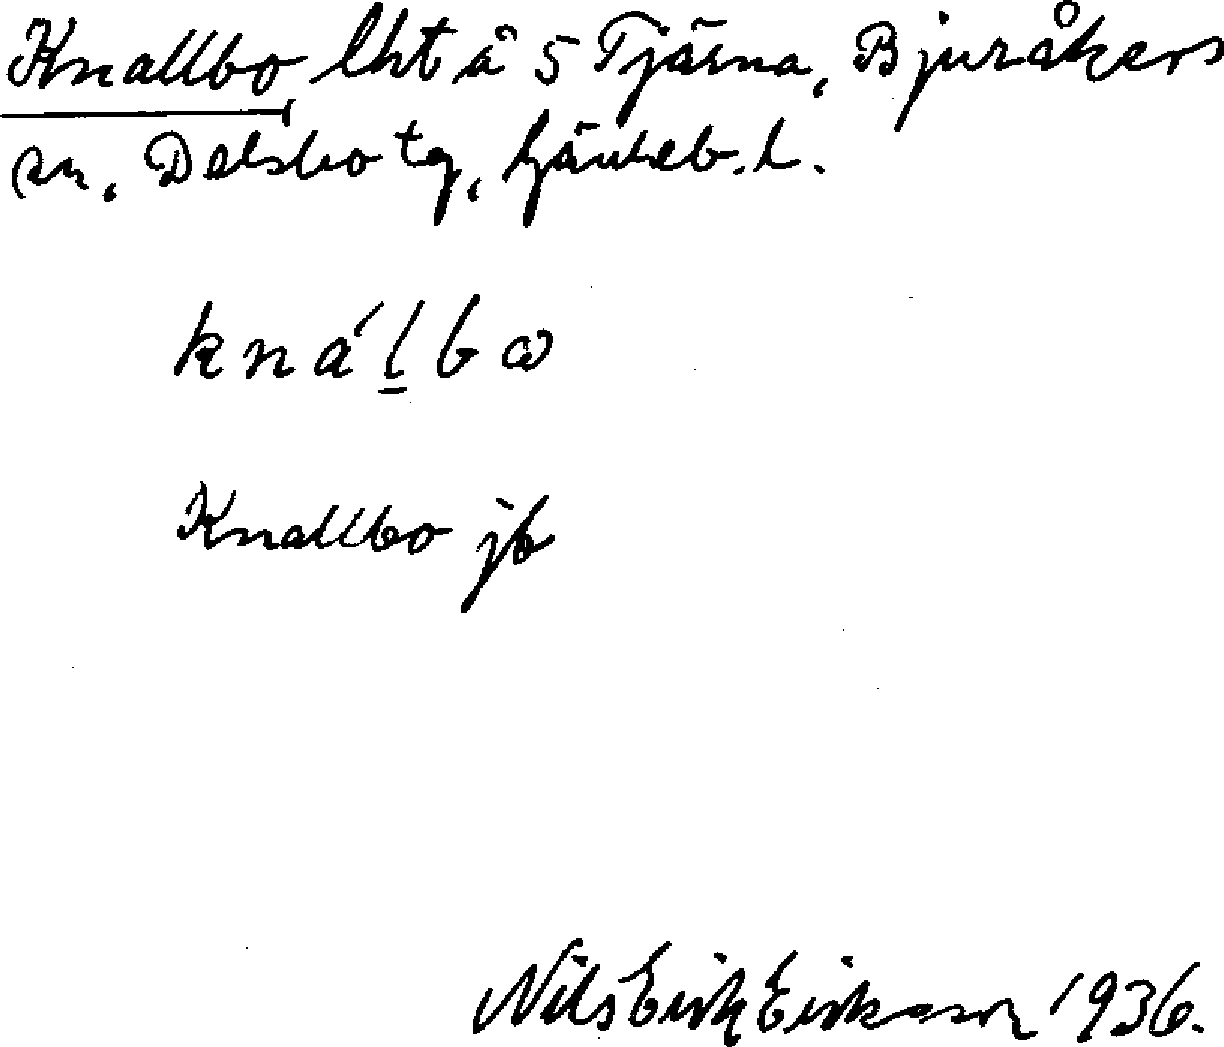 Knallbo lht å 5 Tjärna, Bjuråkers
sn, Delsbo tg, Gävleb. l.
kna´l̲bω
Knallbo jb
Nils Erik Eriksson 1936.